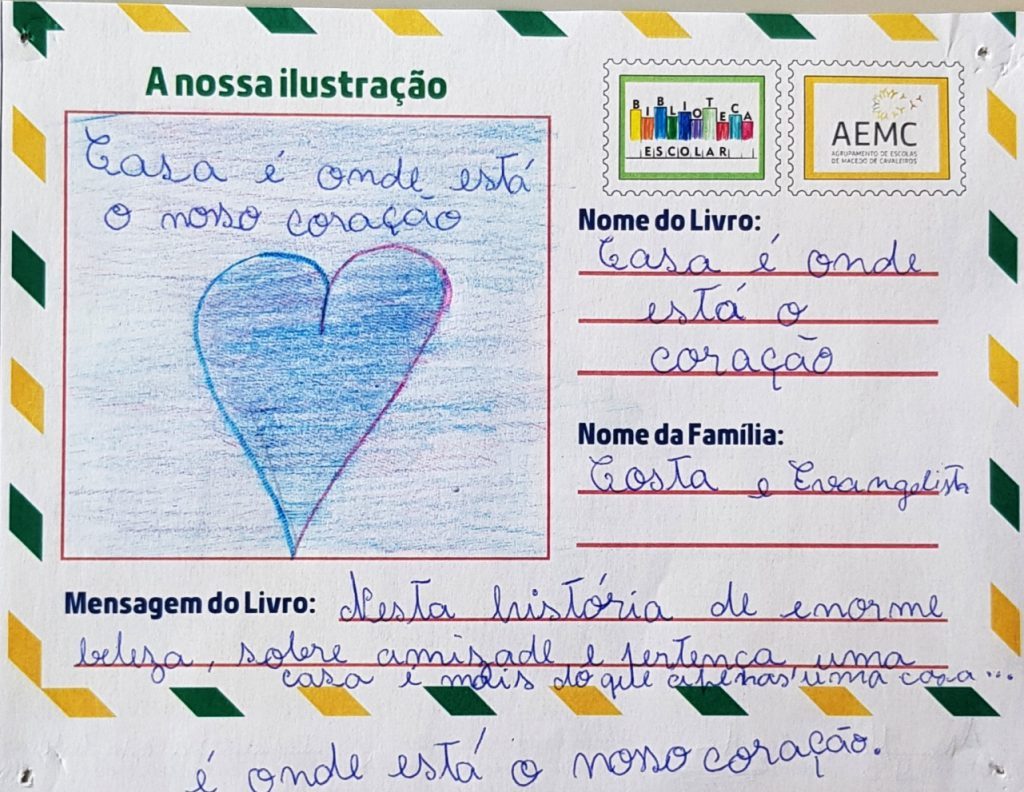 A nossa ilustração
Casa é onde está
o nosso coração
BIBLIOTECA
ESCOLAR
AEMC
AGRUPAMENTO DE ESCOLAS
DE MACEDO DE CAVALEIROS
Nome do Livro:
Casa é onde
está o
coração
Nome da Família:
Costa e Evangelista
Mensagem do Livro: Nesta história de enorme
beleza, sobre amizade e pertença, uma
casa é mais do que apenas uma casa...
é onde está o nosso coração.